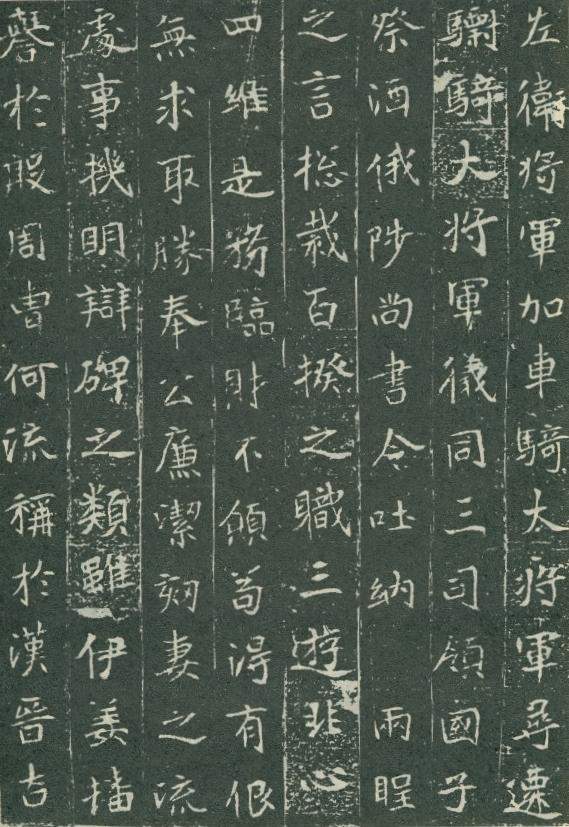 左衛将軍加車騎大将軍尋遷
驃騎大将軍儀同三司領國子
祭酒俄陟尚書令吐納 兩聖
之言揔裁百揆之職三遊非心
四維是務臨財不傾苟得有佷
無求取勝奉公廉潔刼妻之流
處事機明辯碑之類雖伊姜播
譽於殷周曺何流稱於漢晉古